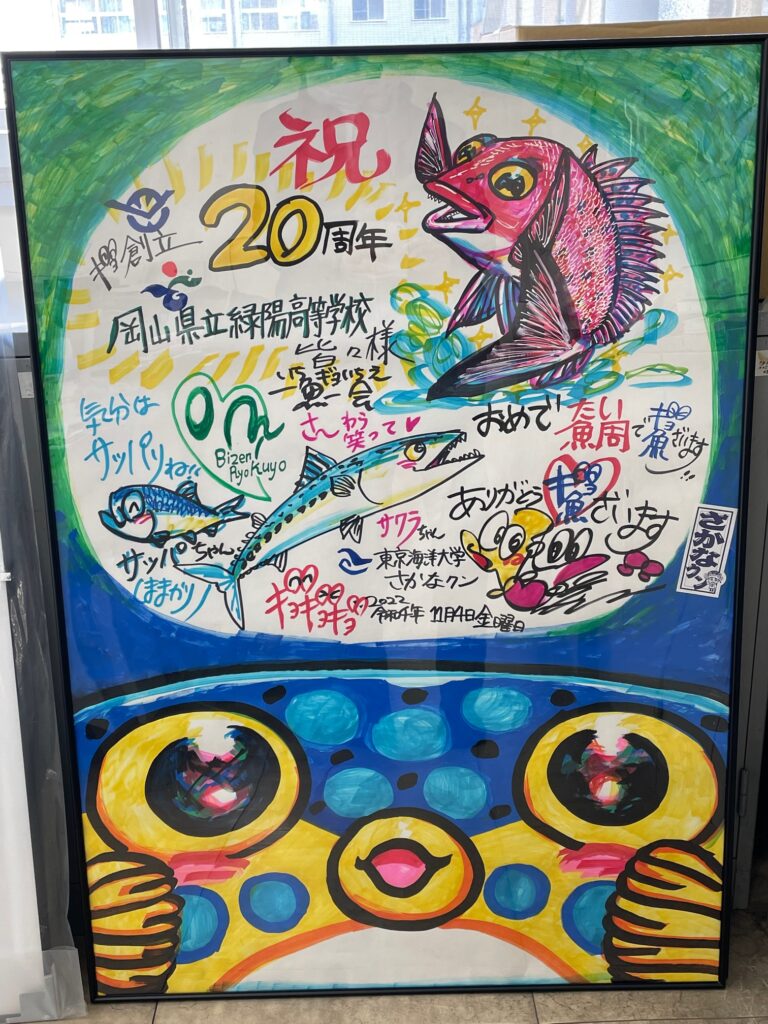 祝
創立
20周年
岡山県立緑陽高等学校
皆々様
いちぎょいちえ
一魚一会
気分は
サッパリね
Bizen
Ryokuyo
さんわら
笑って♥
おめで
たい
鯛
で
ギョ
魚ざいます!!
ありがとう
ギョ
魚ざいます
サッパちゃん
(ままかり)
サワラちゃん
東京海洋大学
さかなクン
ギョギョギョ
2022
令和4年 11月4日金曜日
さかなクン